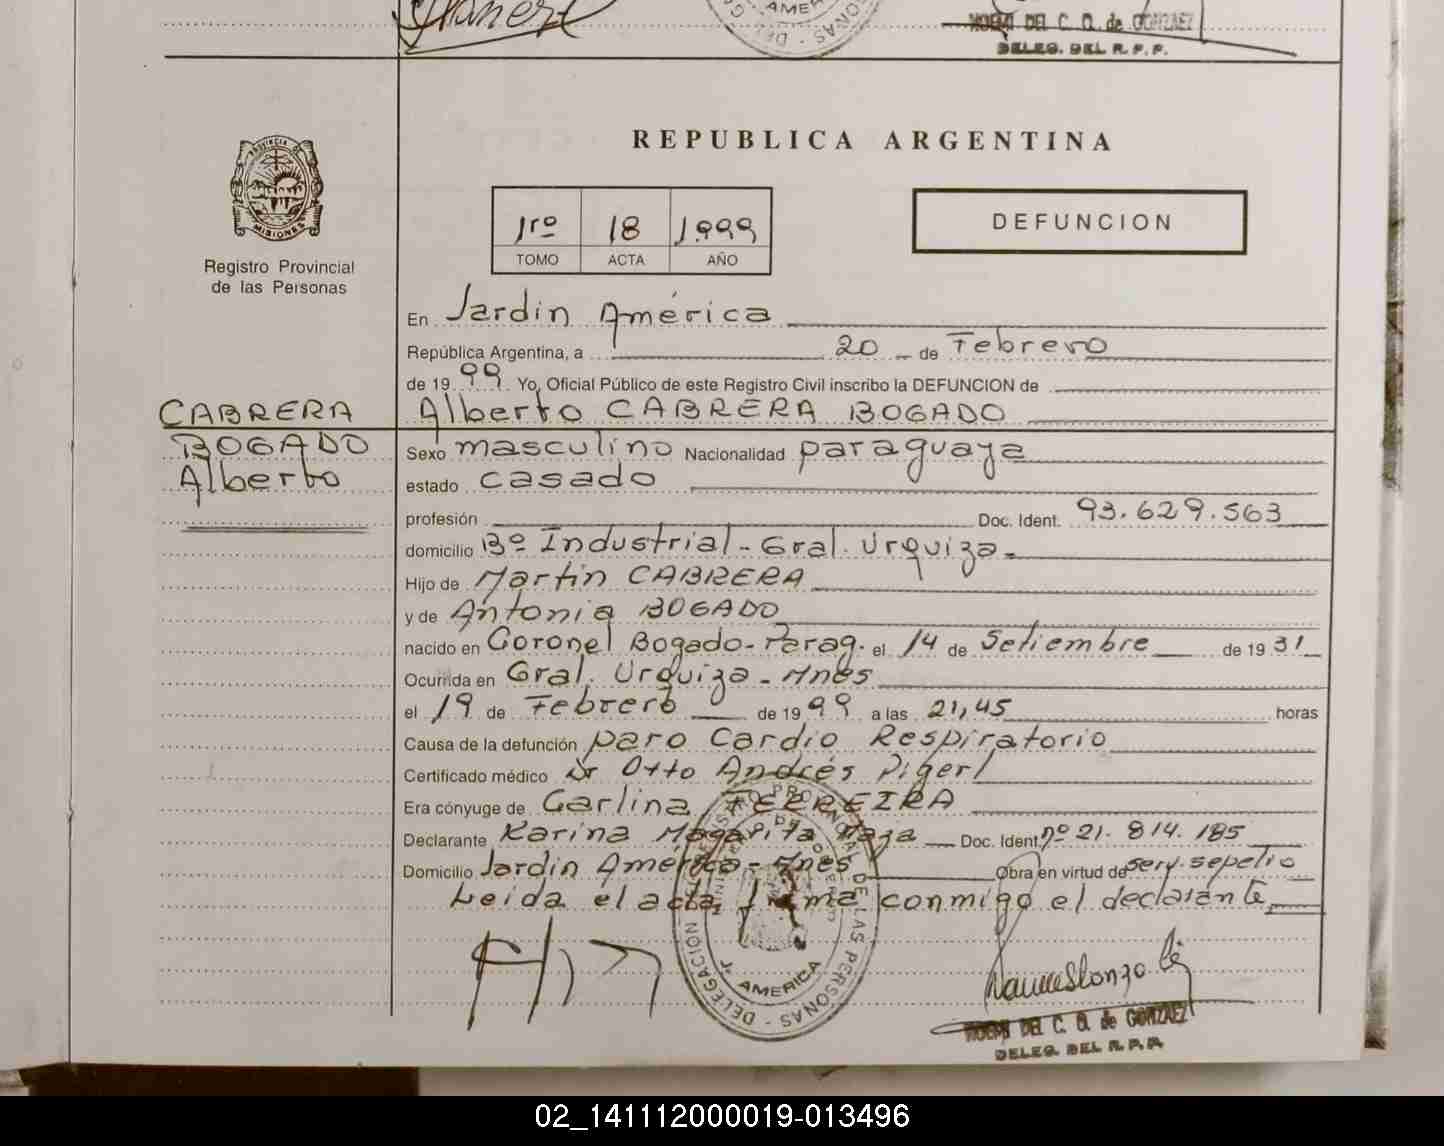 NOEMI DEL C. D. de GONZALEZ
DELEG. DEL R. P. P.
AMERICA
PROVINCIA DE
MISIONES
Registro Provincial
de las Personas
REPUBLICA ARGENTINA
1ro 18 1999
TOMO ACTA AÑO
DEFUNCION
En Jardin América
República Argentina, a 20 de Febrero
de 19 99 Yo, Oficial Público de este Registro Civil inscribo la DEFUNCION de
CABRERA Alberto CABRERA BOGADO
BOGADO Sexo masculino Nacionalidad paraguaya
Alberto estado casado
profesión Doc. Ident. 93.629.563
domicilio Bº Industrial - Gral. Urquiza -
Hijo de Martin CABRERA
y de Antonia BOGADO
nacido en Coronel Bogado - Parag. el 14 de Setiembre de 19 31
Ocurrida en Gral. Urquiza - Mnes
el 19 de Febrero de 19 99 a las 21,45 horas
Causa de la defunción paro Cardio Respiratorio
Certificado médico Dr Otto Andrés Pigerl
Era cónyuge de Carlina FERREIRA
Declarante Karina Magarita Maza Doc. Ident. nº 21.814.185
Domicilio Jardin América - Mnes Obra en virtud de serv. sepelio
Leida el acta, firma conmigo el declarante,
DELEGACION Jn AMERICA
REGISTRO PROVINCIAL DE LAS PERSONAS
MINISTERIO DE GOBIERNO
NOEMI DEL C. D. de GONZALEZ
DELEG. DEL R. P. P.
02_141112000019-013496